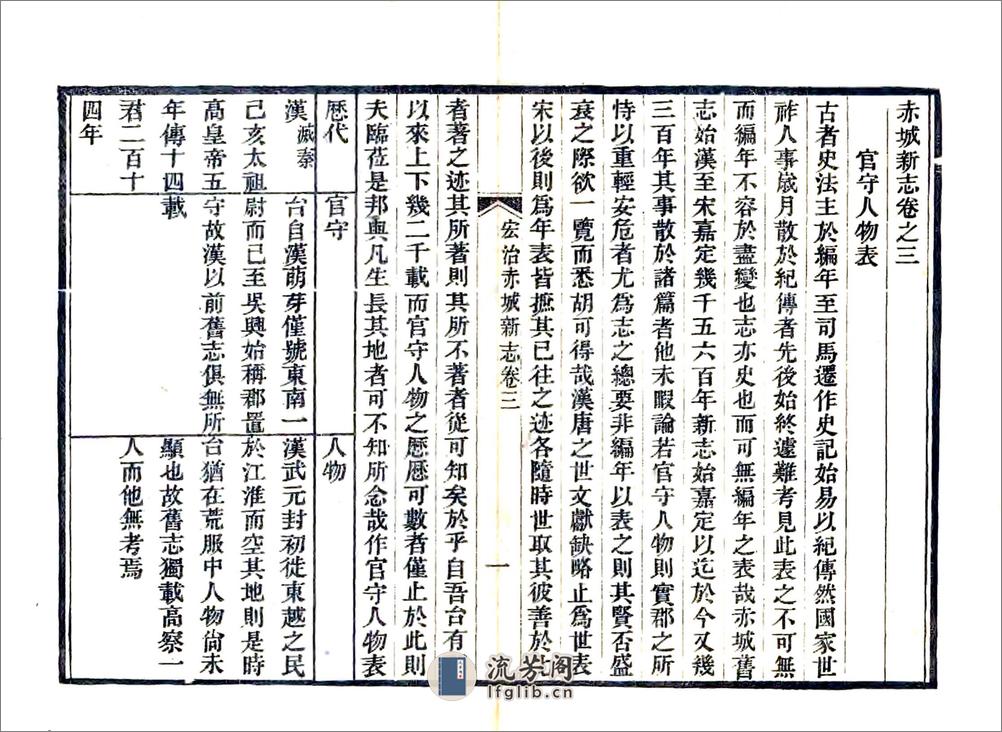 赤城新志卷之三
官守人物表
古者史法主於編年至司馬遷作史記始易以紀傳然國家世
祚人事歲月散於紀傳者先後始終遽難考見此表之不可無
而編年不容於盡變也志亦史也而可無編年之表哉赤城舊
志始漢至宋嘉定幾千五六百年新志始嘉定以迄於今又幾
三百年其事散於諸篇者他未暇論若官守人物則實郡之所
恃以重輕安危者尤爲志之總要非編年以表之則其賢否盛
衰之際欲一覽而悉胡可得哉漢唐之世文獻缺略止爲世表
宋以後則爲年表皆摭其已往之迹各隨時世取其彼善於
宏治赤城新志卷三
一
者著之迹其所著則其所不著者從可知矣於乎自吾台有
以來上下幾二千載而官守人物之厯厯可數者僅止於此則
夫臨莅是邦與凡生長其地者可不知所念哉作官守人物表
厯代
官守
人物
漢滅秦
己亥太祖
高皇帝五
年傳十四
君二百十
四年
台自漢萌芽僅號東南一
尉而已至吳興始稱郡置
守故漢以前舊志俱無所
載
漢武元封初徙東越之民
於江淮而空其地則是時
台猶在荒服中人物尙未
顯也故舊志獨載高察一
人而他無考焉
流芳阁
lfglib.cn